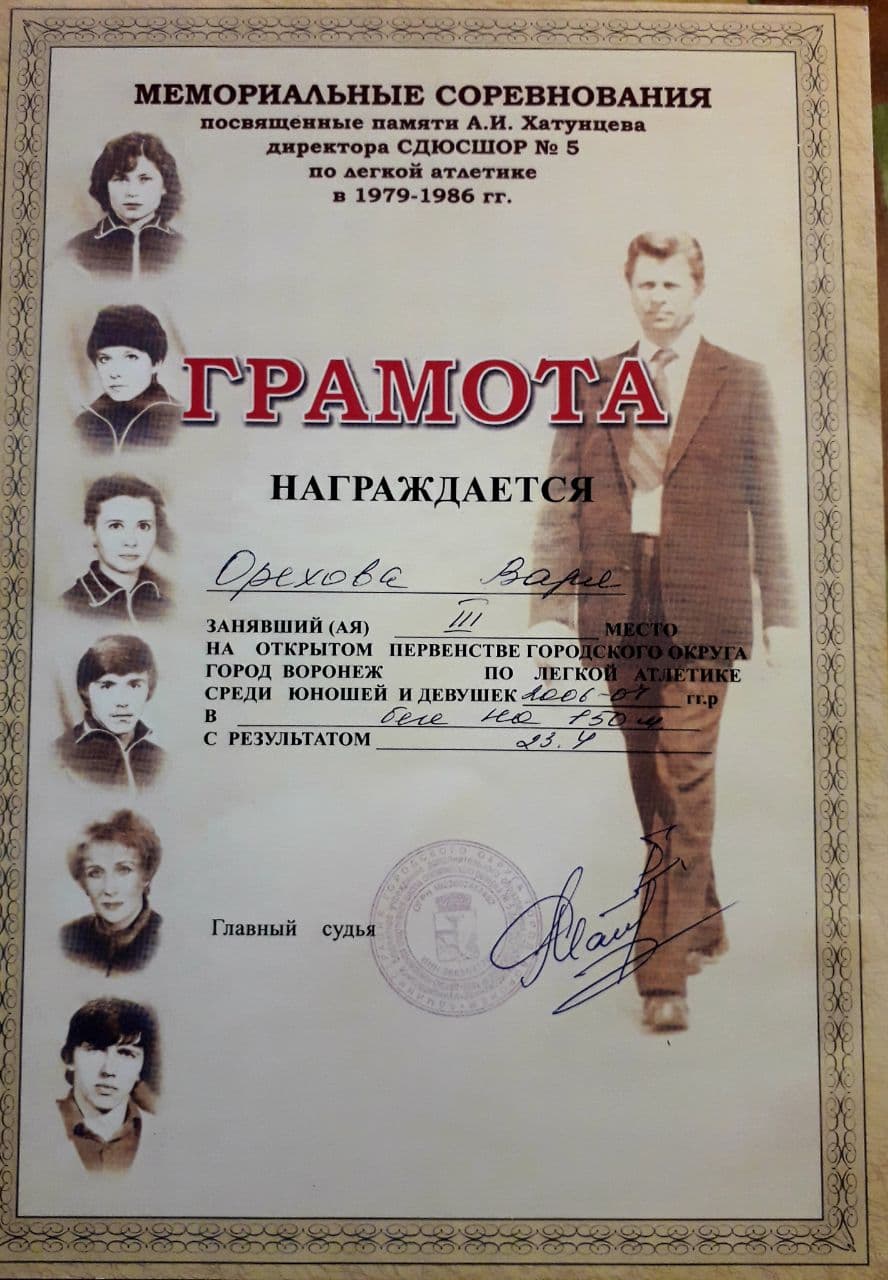 МЕМОРИАЛЬНЫЕ СОРЕВНОВАНИЯ
посвященные памяти А.И. Хатунцева
директора СДЮСШОР № 5
по легкой атлетике
в 1979-1986 гг.
ГРАМОТА
НАГРАЖДАЕТСЯ
Орехова Варя
ЗАНЯВШИЙ (АЯ) III МЕСТО
НА ОТКРЫТОМ ПЕРВЕНСТВЕ ГОРОДСКОГО ОКРУГА
ГОРОД ВОРОНЕЖ ПО ЛЕГКОЙ АТЛЕТИКЕ
СРЕДИ ЮНОШЕЙ И ДЕВУШЕК 2006-07 гг.р
В беге на 150 м
С РЕЗУЛЬТАТОМ 23.4
Главный судья